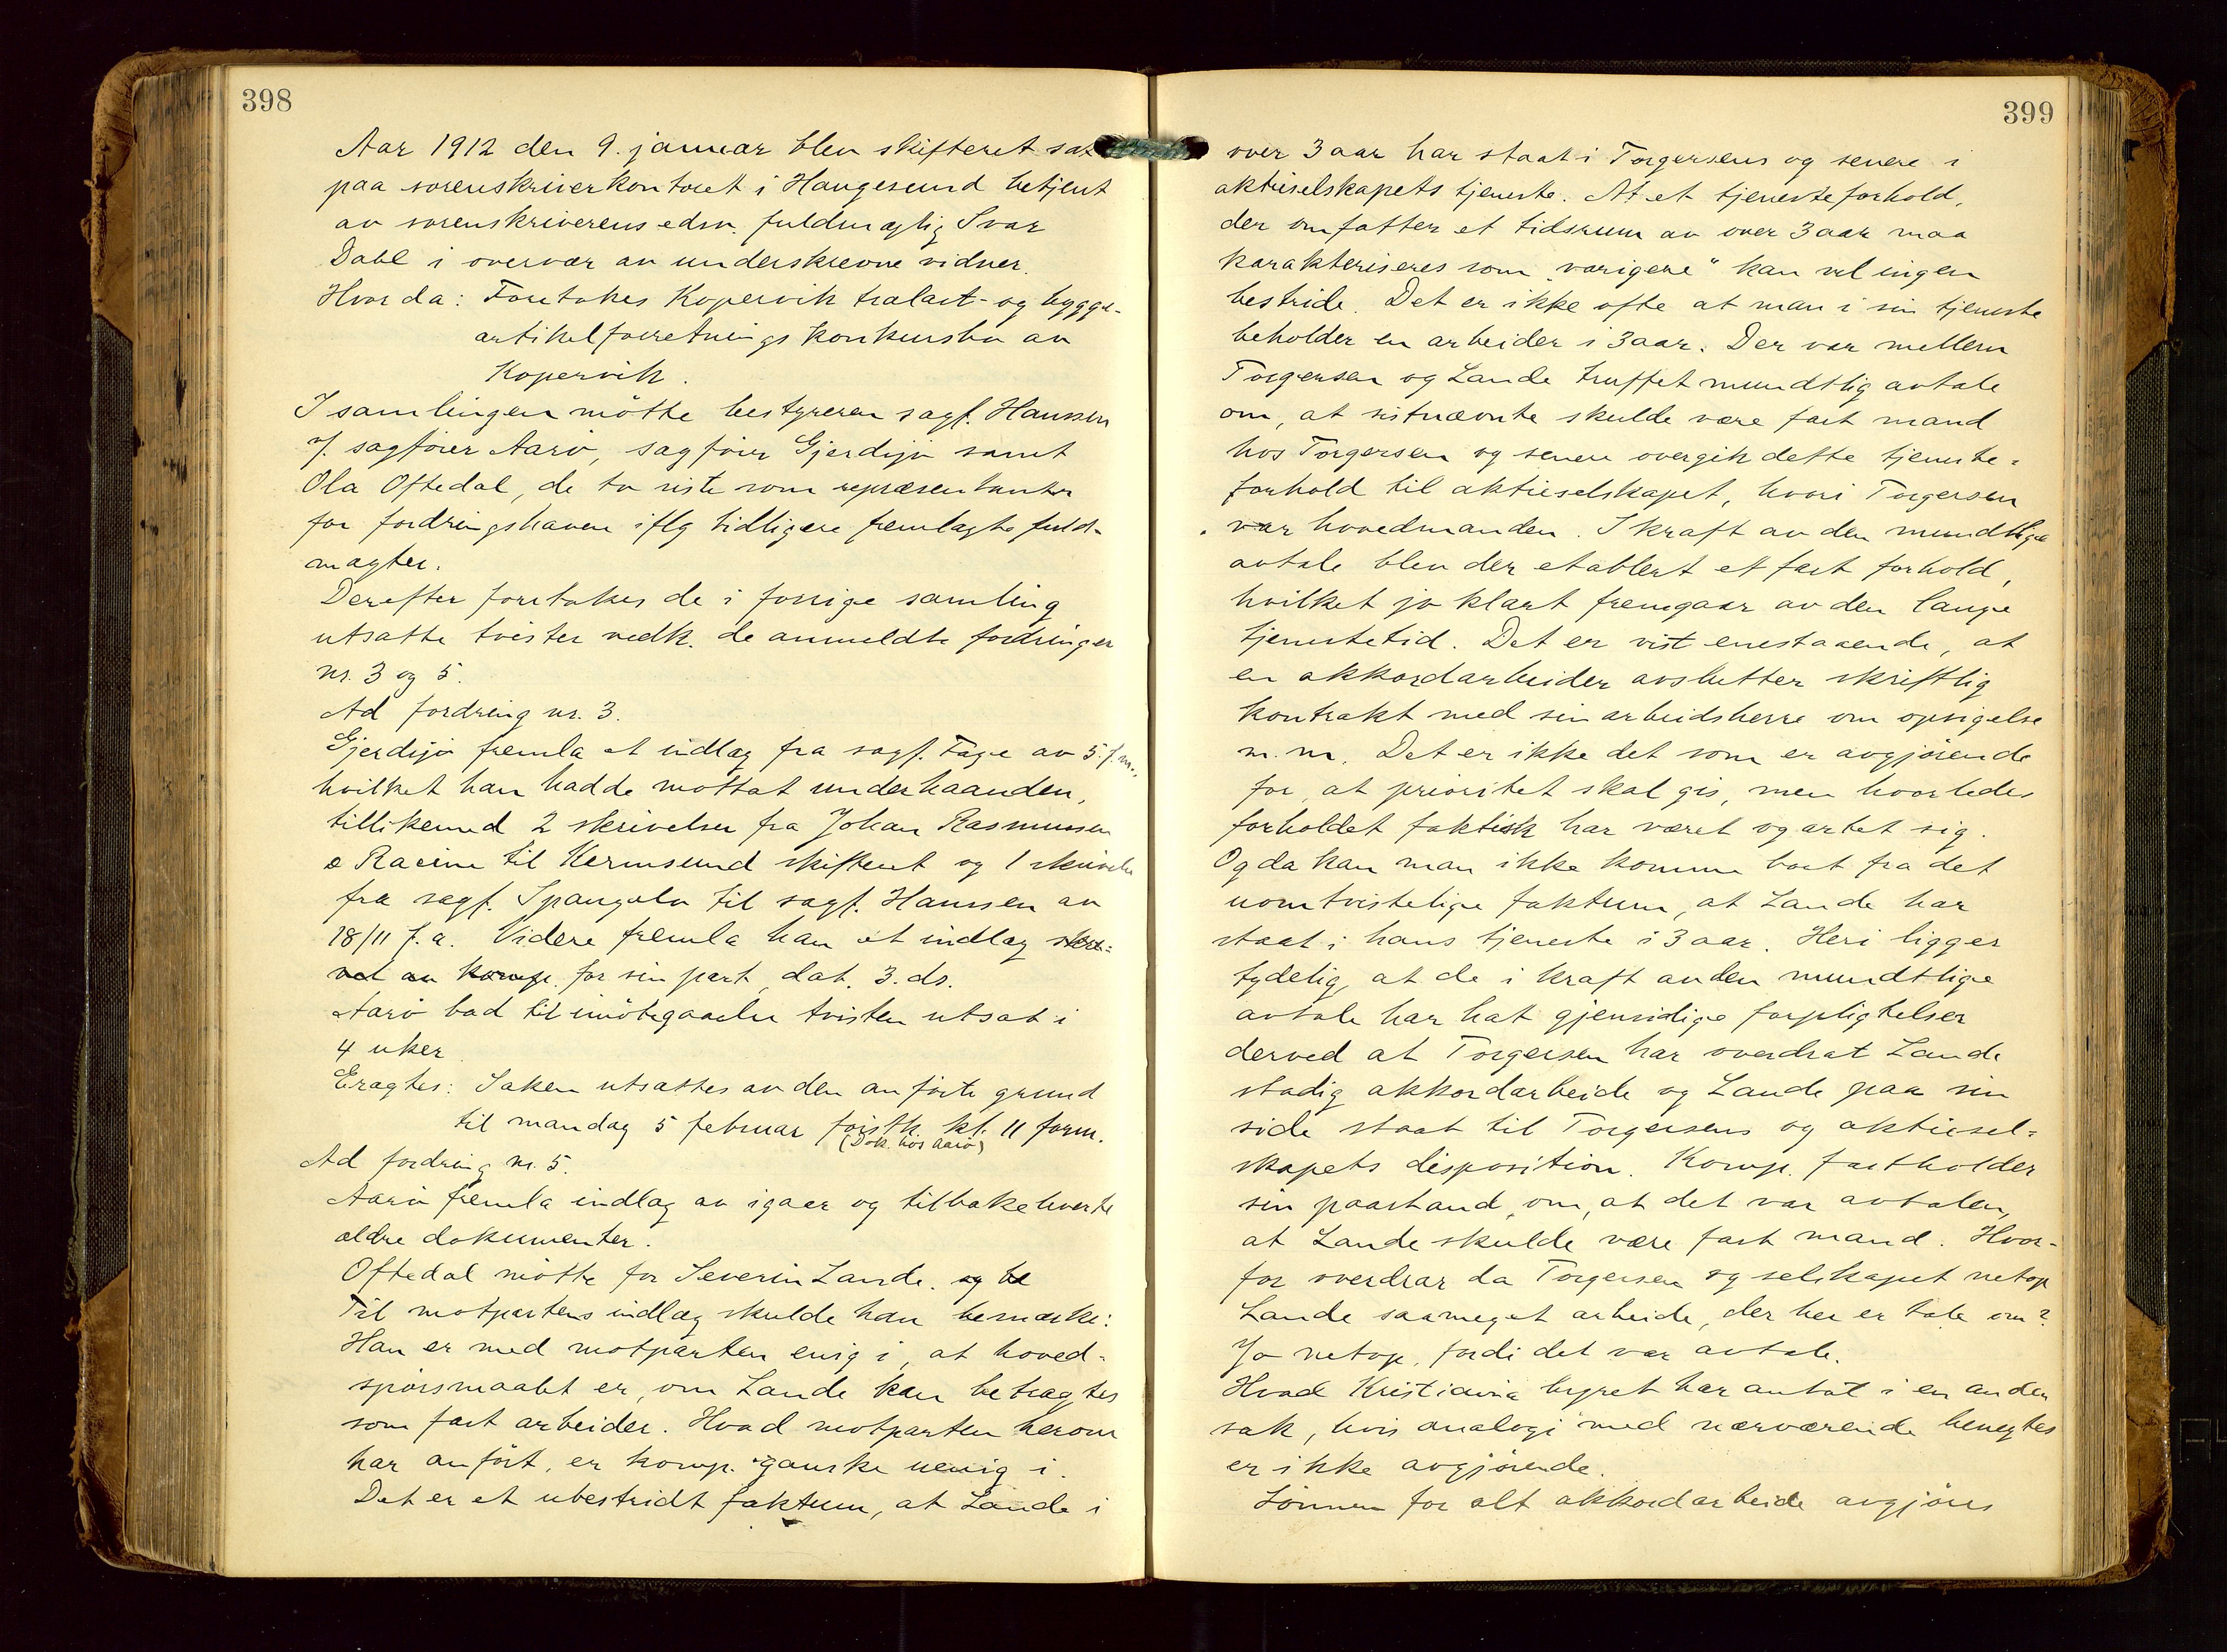 398
Aar 1912 den 9. januar blev skifteret sat
paa sorenskriverkontoret i Haugesund betjent
av sorenskriverens edsv. fuldmægtig Ivar
Dahl i overvær av underskrevne vidner.
Hvorda: Foretokes Kopervik trælast- og bygge-
artikelforretnings konkursbo av
Kopervik.
I samlingen mötte bestyreren sagf. Hanssen
v/. sagförer Aarö, sagförer Gjerdsjö samt
Ola Oftedal, de to siste som repræsentanter
for fordringshavere iflg tidligere fremlagte fuld-
magter.
Derefter foretokes de i forrige samling
utsatte tvister vedk. de anmeldte fordringer
nr. 3 og 5.
Ad fordring nr. 3.
Gjerdsjö fremla et indlæg fra sagf. Fage av 5. f.m.,
hvilket han hadde mottat underhaanden,
tillikemed 2 skrivelser fra Johan Rasmussen
& Racine til Karmsund skifteret og 1 skrivelse
fra sagf. Spangelo til sagf. Hanssen av
18/11 f.a. Videre fremla han et indlæg
for sin part, dat. 3. ds.
Aarö bad til imötegaaelse tvisten utsat i
4 uker.
Eragtes: Saken utsattes av den anförte grund
til mandag 5 februar förstk. kl. 11 form.
(Dok. hos Aarö)
Ad fordring nr. 5.
Aarö fremla indlæg av igaar og tilbakeleverte
ældre dokumenter.
Oftedal mötte for Severin Lande. og be
Til motpartens indlæg skulde han bemærke:
Han er med motparten enig i, at hoved-
spörsmaalet er, om Lande kan betragtes
som fast arbeider. Hvad motparten herom
har anfört, er komp. ganske uenig i.
Det er et ubestridt faktum, at Lande i
399
over 3 aar har staat i Torgersens og senere i
aktieselskapets tjeneste. At et tjenesteforhold,
der omfatter et tidsrum av over 3 aar maa
karakteriseres som "varigere" kan vel ingen
bestride. Det er ikke ofte at man i sin tjeneste
beholder en arbeider i 3 aar. Der var mellem
Torgersen og Lande truffet mundtlig avtale
om, at sistnævnte skulde være fast mand
hos Torgersen og senere overgik dette tjeneste-
forhold til aktieselskapet, hvori Torgersen
var hovedmanden. I kraft av den mundtlige
avtale blev der etablert et fast forhold,
hvilket jo klart fremgaar av den lange
tjenestetid. Det er vist enestaaende, at
en akkordarbeider avslutter skriftlig
kontrakt med sin arbeidsherre om opsigelse
m.m. Det er ikke det som er avgjörende
for, at prioritet skal gis, men hvorledes
forholdet faktisk har været og artet sig.
Og da kan man ikke komme bort fra det
uomtvistelige faktum, at Lande har
staat i hans tjeneste i 3 aar. Heri ligger
tydelig, at de i kraft av den mundtlige
avtale har hat gjensidige forpligtelser
derved at Torgersen har overdrat Lande
stadig akkordarbeide og Lande paa sin
side staat til Torgersens og aktiesel-
skapets disposition. Komp. fastholder
sin paastand om, at det var avtalen,
at Lande skulde være fast mand. Hvor-
for overdrar da Torgersen og selskapet netop
Lande saameget arbeide, der her er tale om?
Jo netop, fordi det var avtale.
Hvad Kristiania byret har antat i en anden
sak, hvis analogi med nærværende benegtes
er ikke avgjörende.
Lönnen for alt akkordarbeide avgjöres